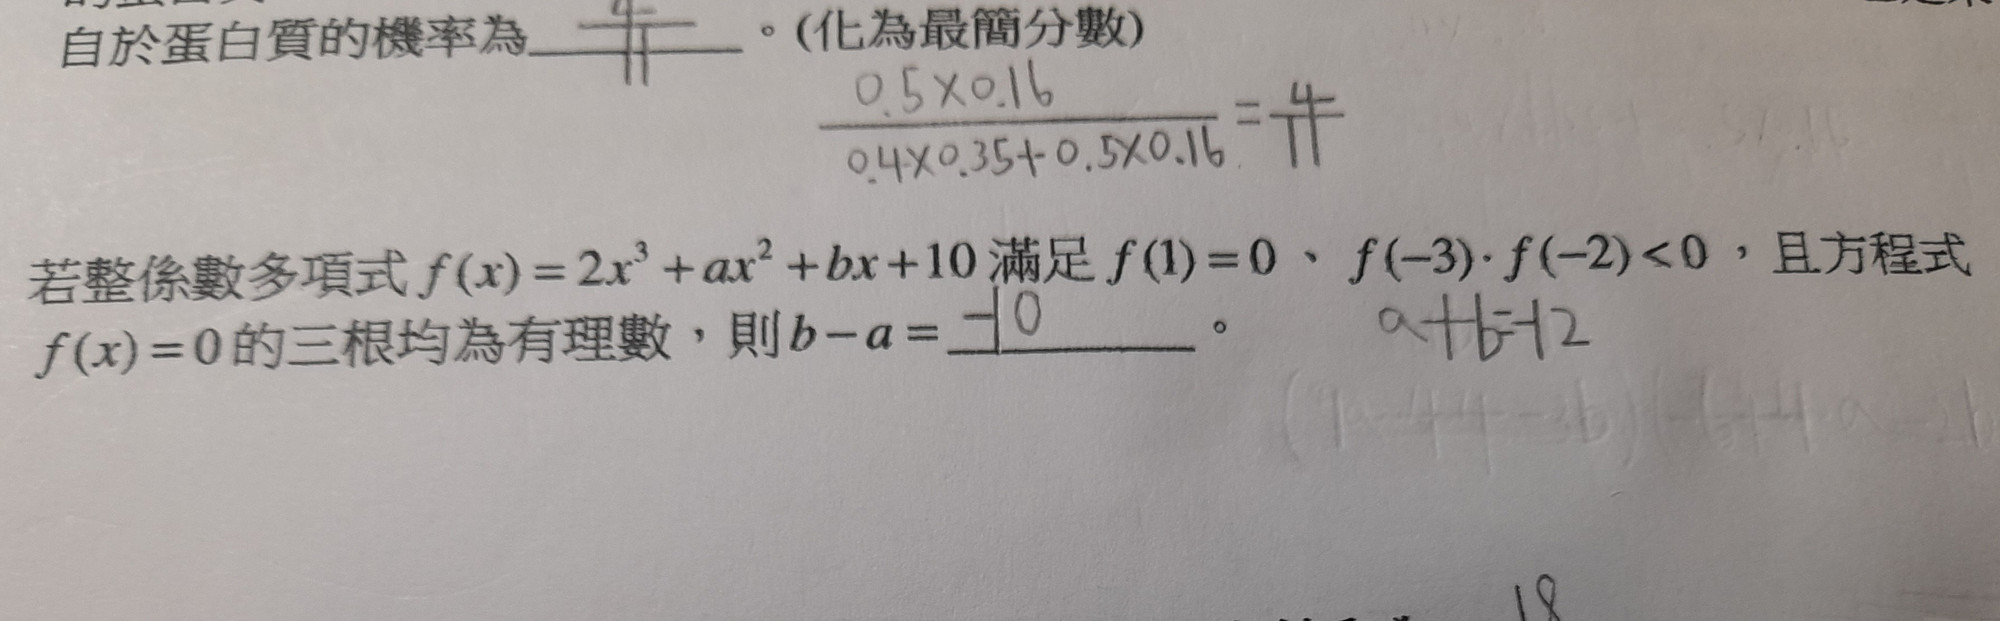 自於蛋白質的機率為 4/11 。(化為最簡分數)
0.5×0.16 / 0.4×0.35+0.5×0.16 = 4/11
若整係數多項式 f(x)=2x³+ax²+bx+10 滿足 f(1)=0、f(−3)·f(−2)<0，且方程式
f(x)=0 的三根均為有理數，則 b−a= -10 。
a+b=-12
18